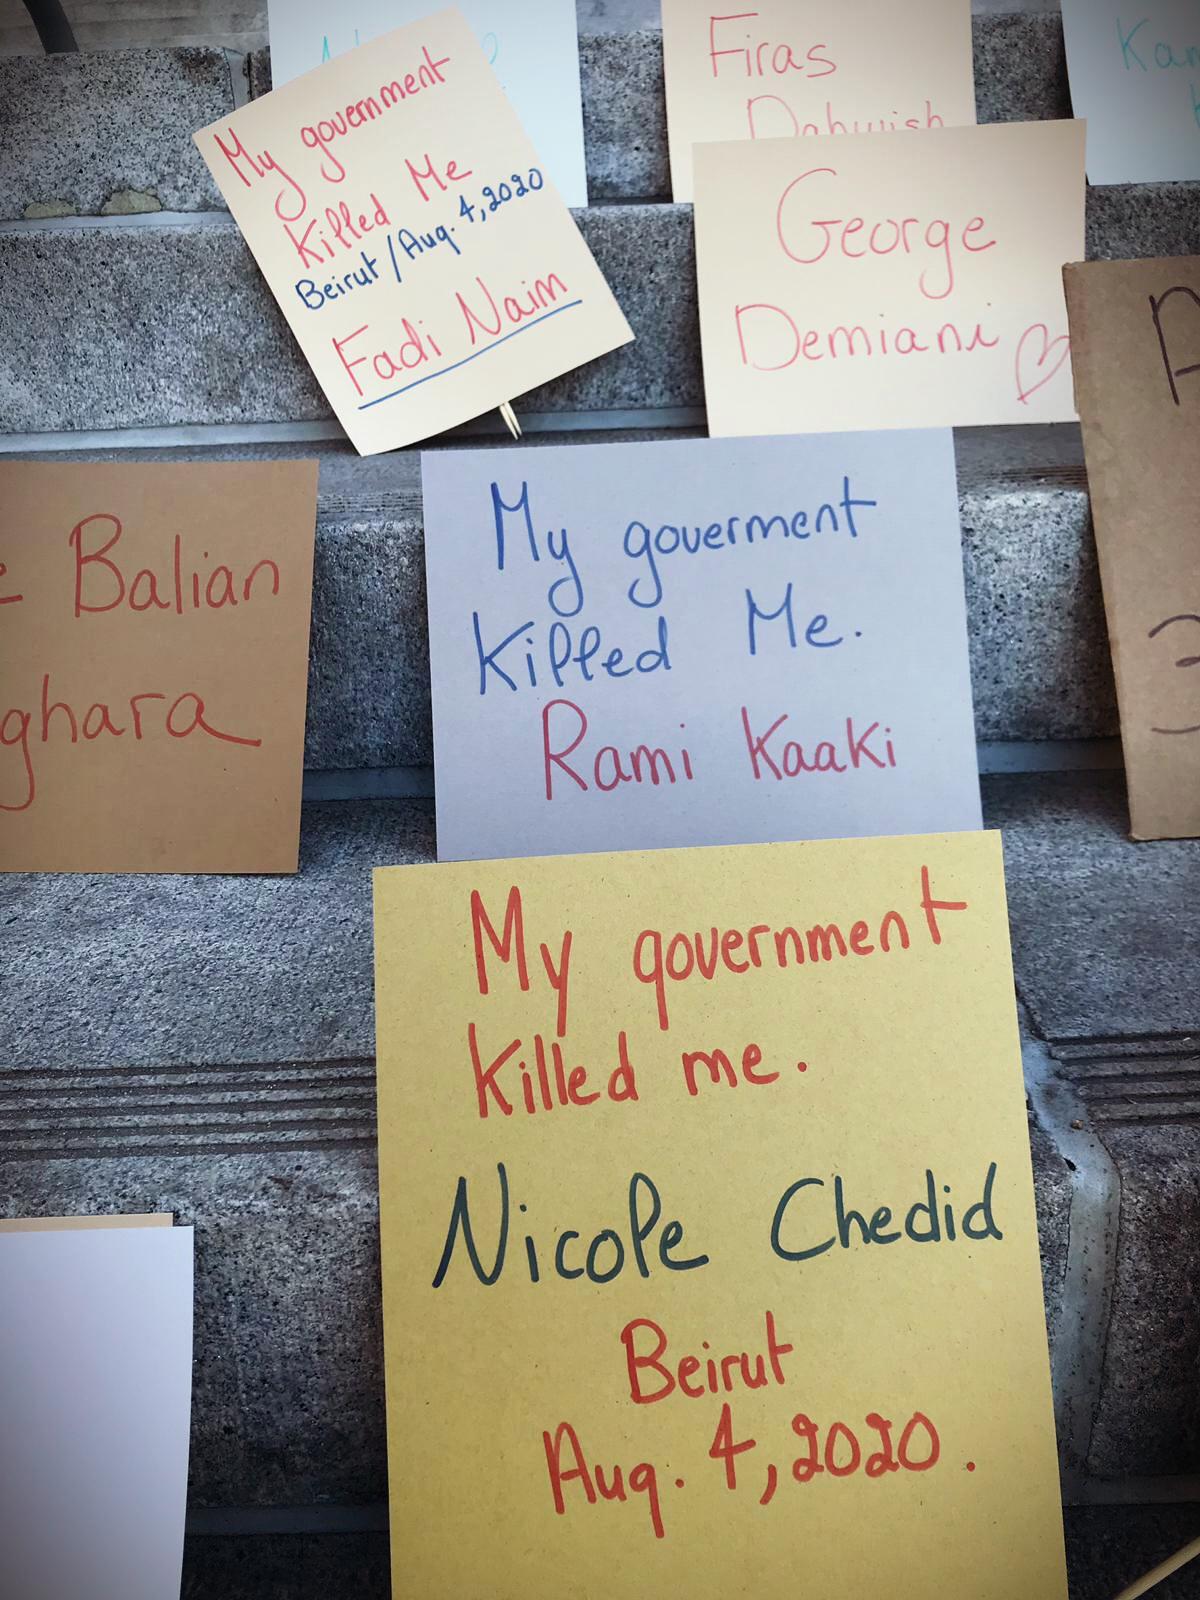 Firas
My government
Killed Me
Beirut/Aug. 4,2020
Fadi Naim
George
Demiani
Balian
My goverment
Killed Me.
Rami Kaaki
My government
Killed me.
Nicole Chedid
Beirut
Aug. 4,2020.